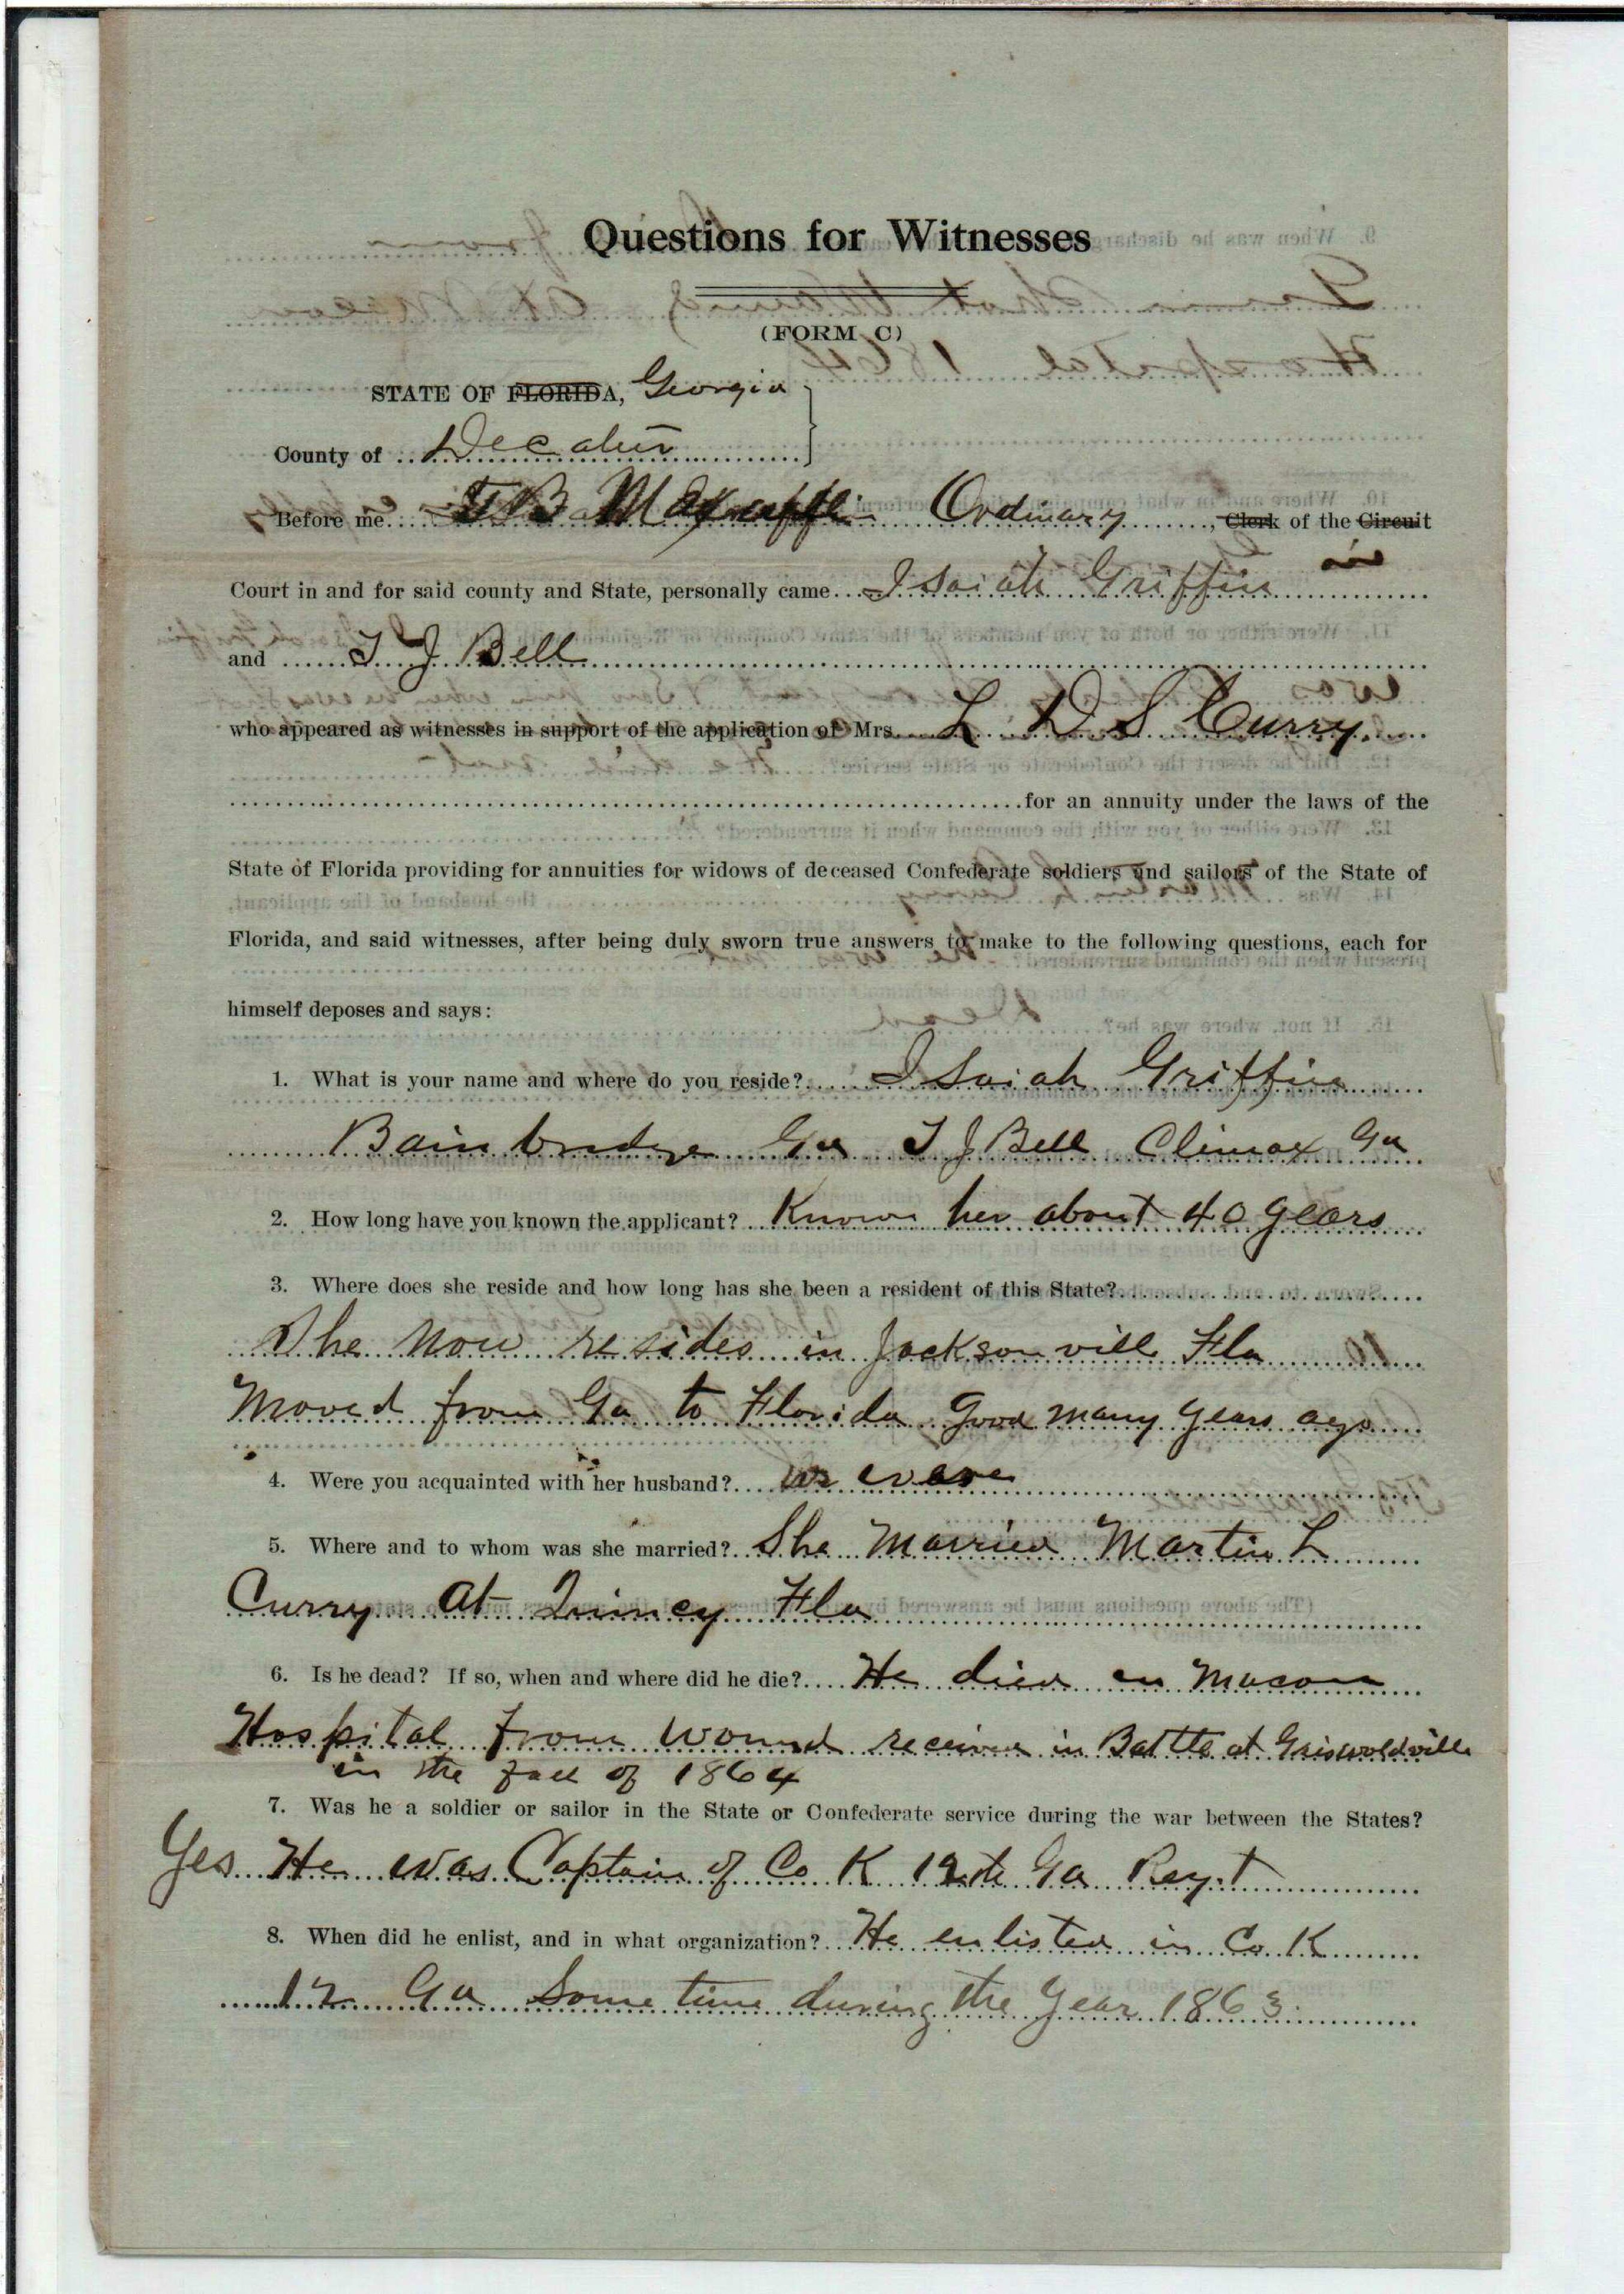 Questions for Witnesses
(FORM C)
STATE OF FLORIDA, Georgia
County of Decatur
Before me T B Ordinary, Clerk of the Circuit
Court in and for said county and State, personally came Isaiah Griffin
and T J Bell
who appeared as witnesses in support of the application of Mrs. L D S Curry.
for an annuity under the laws of the
State of Florida providing for annuities for widows of deceased Confederate soldiers and sailors of the State of
Florida, and said witnesses, after being duly sworn true answers to make to the following questions, each for
himself deposes and says:
1. What is your name and where do you reside? Isaiah Griffin
Bainbridge Ga T J Bell Climax Ga
2. How long have you known the applicant? Known her about 40 years
3. Where does she reside and how long has she been a resident of this State?
She now resides in Jacksonvill Fla
Moved from Ga to Florida good many years ago
4. Were you acquainted with her husband? we were
5. Where and to whom was she married? She married Martin L
Curry at Quincy Fla
6. Is he dead? If so, when and where did he die? He died in Macon
Hospital from wound received in Battle at Griswoldville
in the fall of 1864
7. Was he a soldier or sailor in the State or Confederate service during the war between the States?
Yes He was Captain of Co K 12th Ga Regt
8. When did he enlist, and in what organization? He enlisted in Co K
12 Ga Some time during the year 1863.